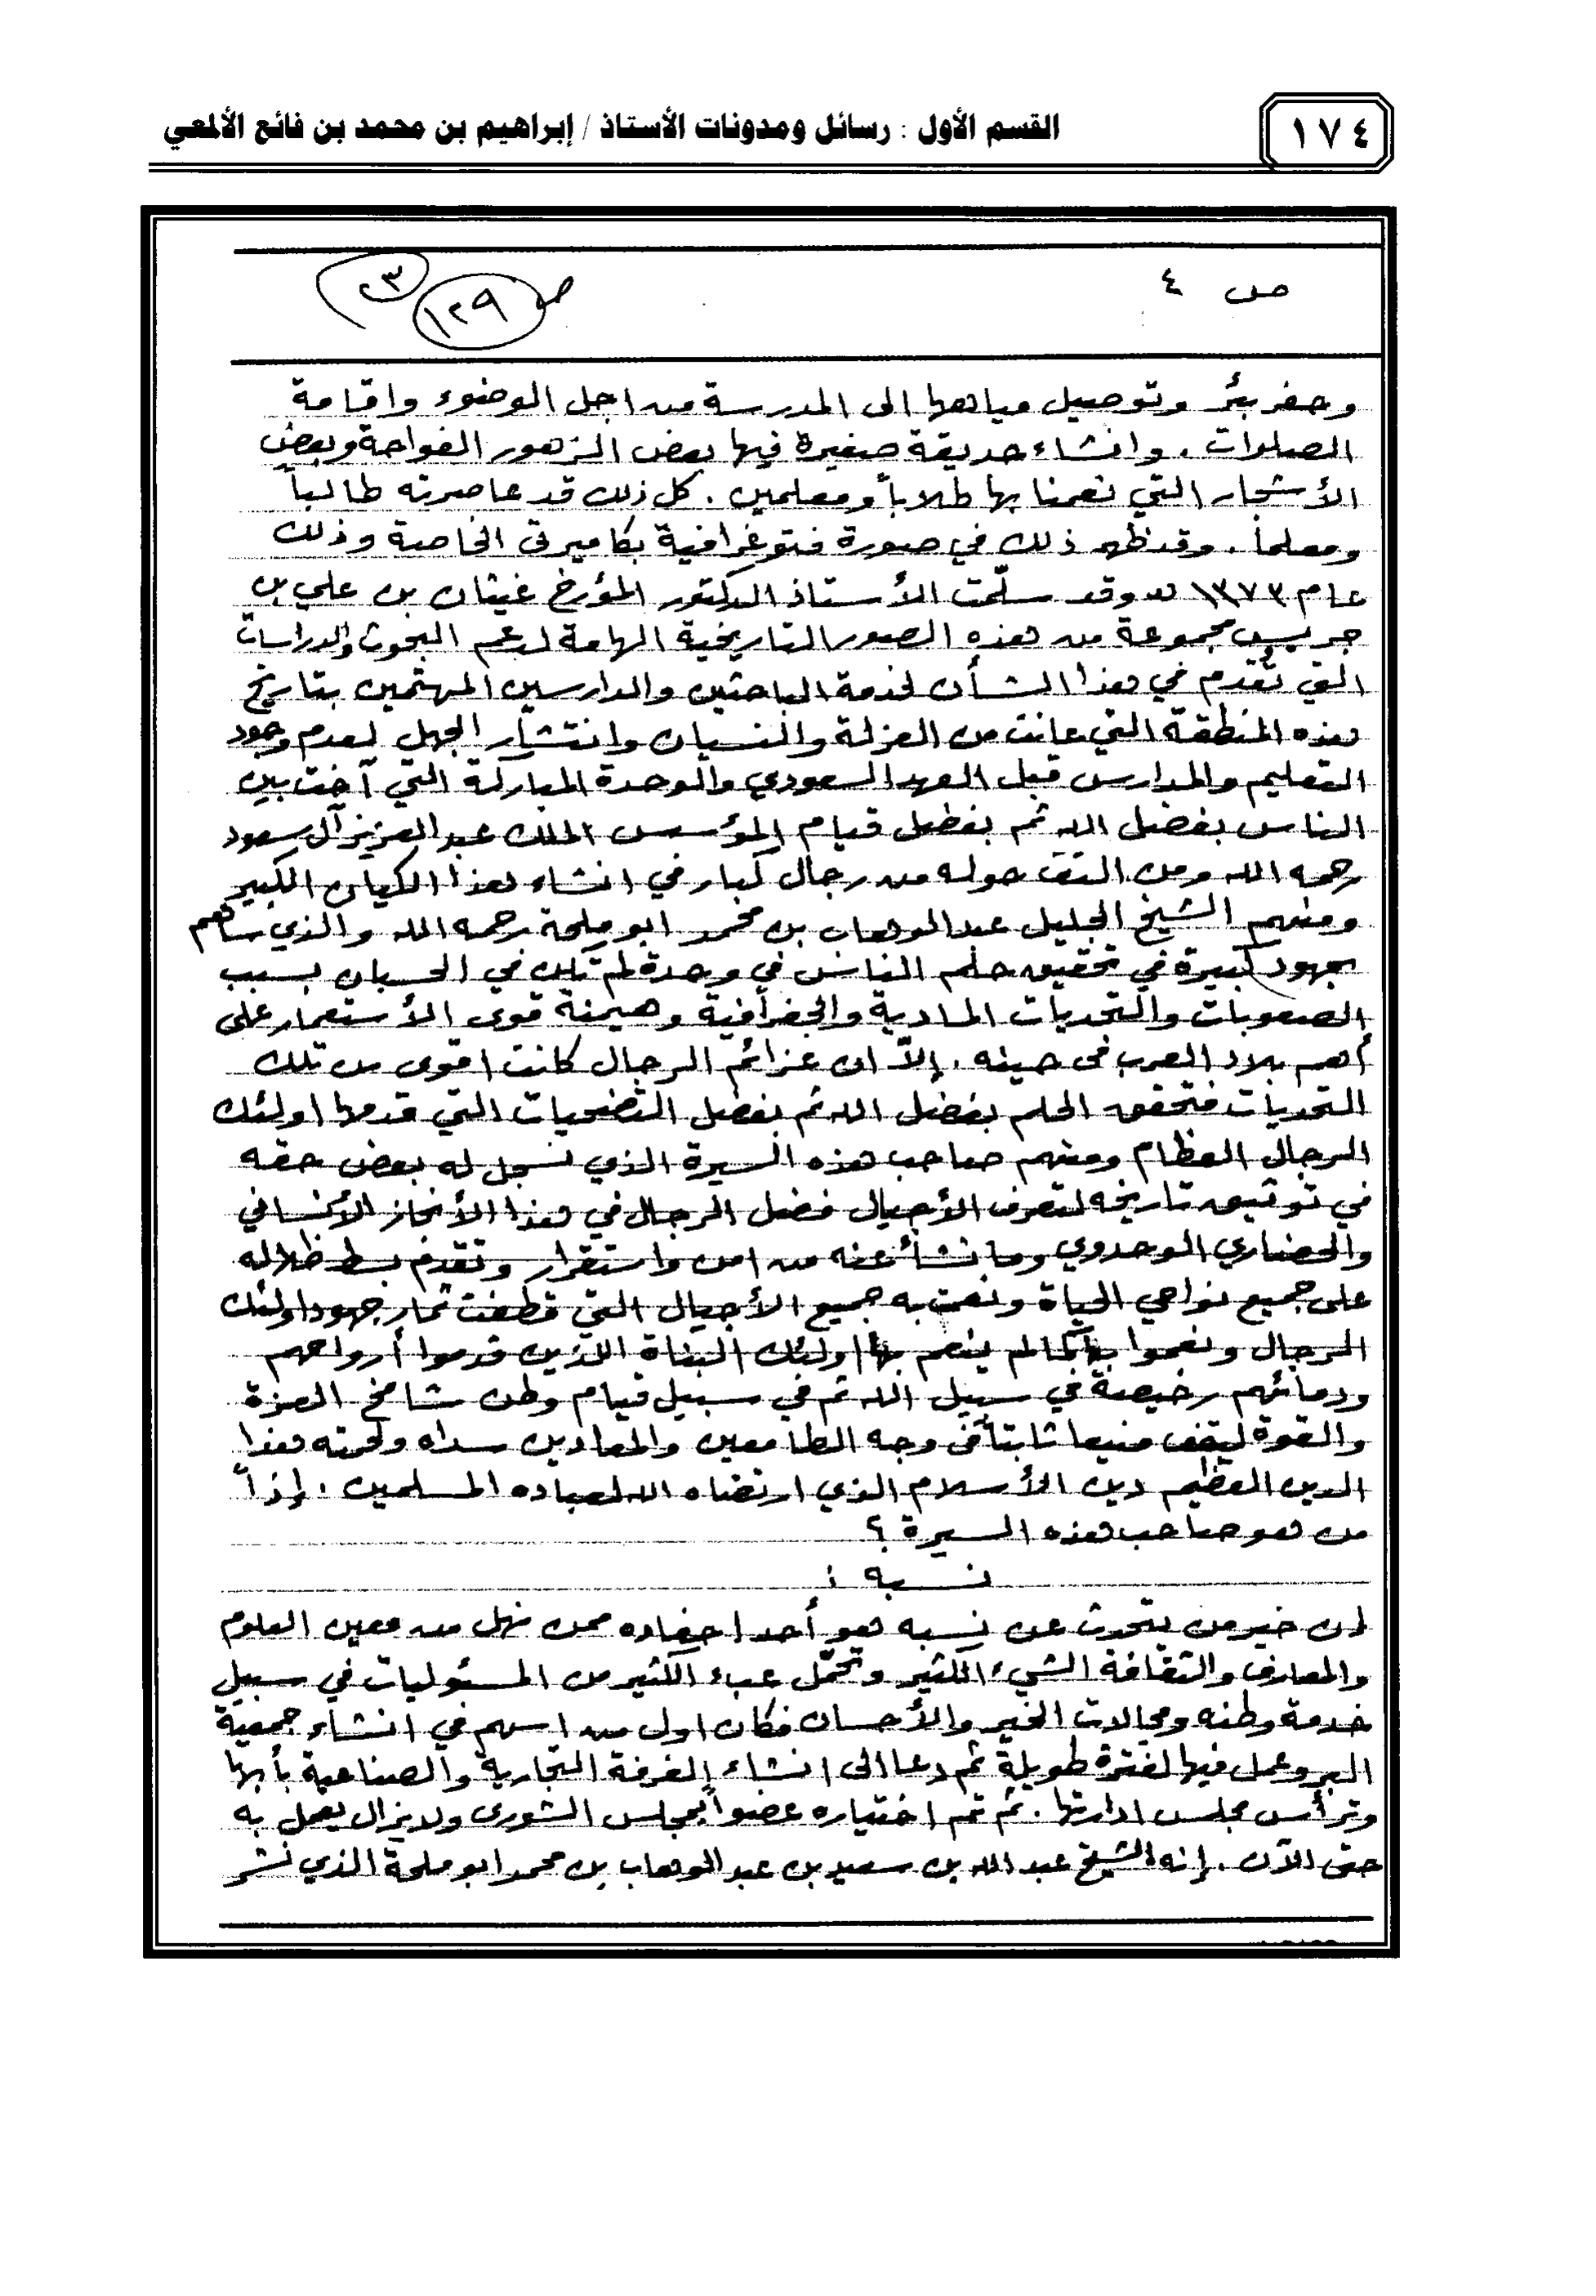 ١٧٤
القسم الأول : رسائل ومدونات الأستاذ / إبراهيم بن محمد بن فائع الألمعي
ص ٤
ص ١٢٩
٣
وحفر بئر وتوصيل مياهها الى المدرسة من اجل الوضوء واقامة
الصلوات . وانشاء حديقة صغيرة فيها بعض الزهور الفواحة وبعض
الأشجار التي نعمنا بها طلاباً ومعلمين . كل ذلك قد عاصرته طالباً
ومعلماً . وقد ظهر ذلك في صورة فتوغرافية بكاميرتي الخاصة وذلك
عام ١٣٧٣ هـ وقد سلّمت الأستاذ الدكتور المؤرخ غيثان بن علي بن
جريس مجموعة من هذه الصور التاريخية الهامة لدعم البحوث والدراسات
التي تُقدم في هذا الشأن لخدمة الباحثين والدارسين المهتمين بتاريخ
هذه المنطقة التي عانت من العزلة والنسيان وانتشار الجهل لعدم وجود
التعليم والمدارس قبل العهد السعودي والوحدة المباركة التي آخت بين
الناس بفضل الله ثم بفضل قيام المؤسس الملك عبدالعزيز آل سعود
رحمه الله ومن التف حوله من رجال كبار في انشاء هذا الكيان الكبير
ومنهم الشيخ الجليل عبدالوهاب بن محمد ابو ملحة رحمه الله والذي ساهم
بجهود كبيرة في تحقيق حلم الناس في وحدة لم تكن في الحسبان بسبب
الصعوبات والتحديات المادية والجغرافية وهيمنة قوى الأستعمار على
أهم بلاد العرب في حينه . إلاّ ان عزائم الرجال كانت اقوى من تلك
التحديات فتحقق الحلم بفضل الله ثم بفضل التضحيات التي قدمها اولئك
الرجال العظام ومنهم صاحب هذه السيرة الذي نسجل له بعض حقه
في توثيق تاريخه لتعرف الأجيال فضل الرجال في هذا الأنجاز الأنساني
والحضاري الوحدوي وما نشأ عنه من امن واستقرار وتقدم بسط ظلاله
على جميع نواحي الحياة ونعمت به جميع الأجيال التي قطفت ثمار جهود اولئك
الرجال ونعموا بها كما لم ينعم بها اولئك البناة الذين قدموا أرواحهم
ودمائهم رخيصة في سبيل الله ثم في سبيل قيام وطن شامخ العزة
والقوة ليقف منيعا ثابتاً في وجه الطامعين والمعادين سداه ولحمته هذا
الدين العظيم دين الأسلام الذي ارتضاه الله لعباده المسلمين . إذاً
من هو صاحب هذه السيرة ؟
نسبه :
إن خير من يتحدث عن نسبه هو أحد احفاده ممن نهل من معين العلوم
والمعارف والثقافة الشيء الكثير وتحمّل عبء الكثير من المسئوليات في سبيل
خدمة وطنه ومجالات الخير والأحسان فكان اول من اسهم في انشاء جمعية
البر وعمل فيها لفترة طويلة ثم دعا الى انشاء الغرفة التجارية والصناعية بأبها
وترأس مجلس ادارتها . ثم تم اختياره عضواً بمجلس الشورى ولا يزال يعمل به
حتى الآن . إنه الشيخ عبدالله بن سعيد بن عبدالوهاب بن محمد ابو ملحة الذي نشر